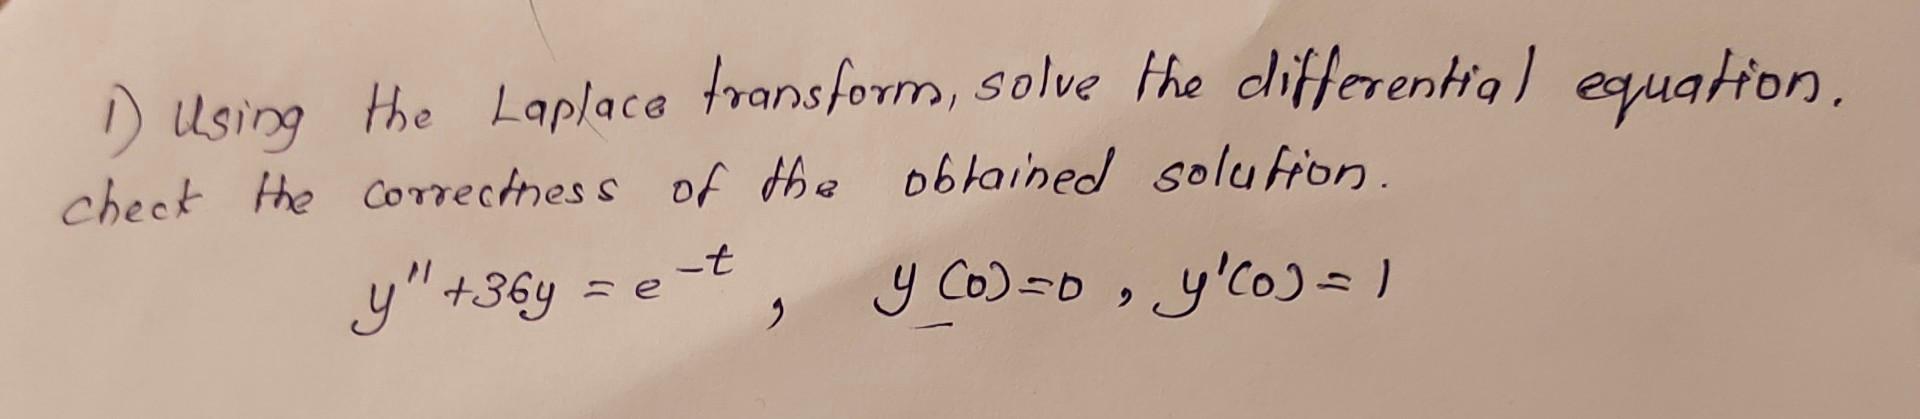 1) Using the Laplace transform, solve the differential equation.
check the correctness of the obtained solution.
y" + 36y = e^-t , y(0)=0 , y'(0)=1